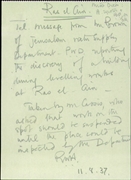 Ras el Ain
Tel. message from Mr
of Jerusalem Water Supply
Department PWD reporting
the discovery of a building
during levelling works
at Ras el Ain.
Taken by Mr
asked that work on
spot would be suspended
until the place could be
inspected by the Department
11.8.37.